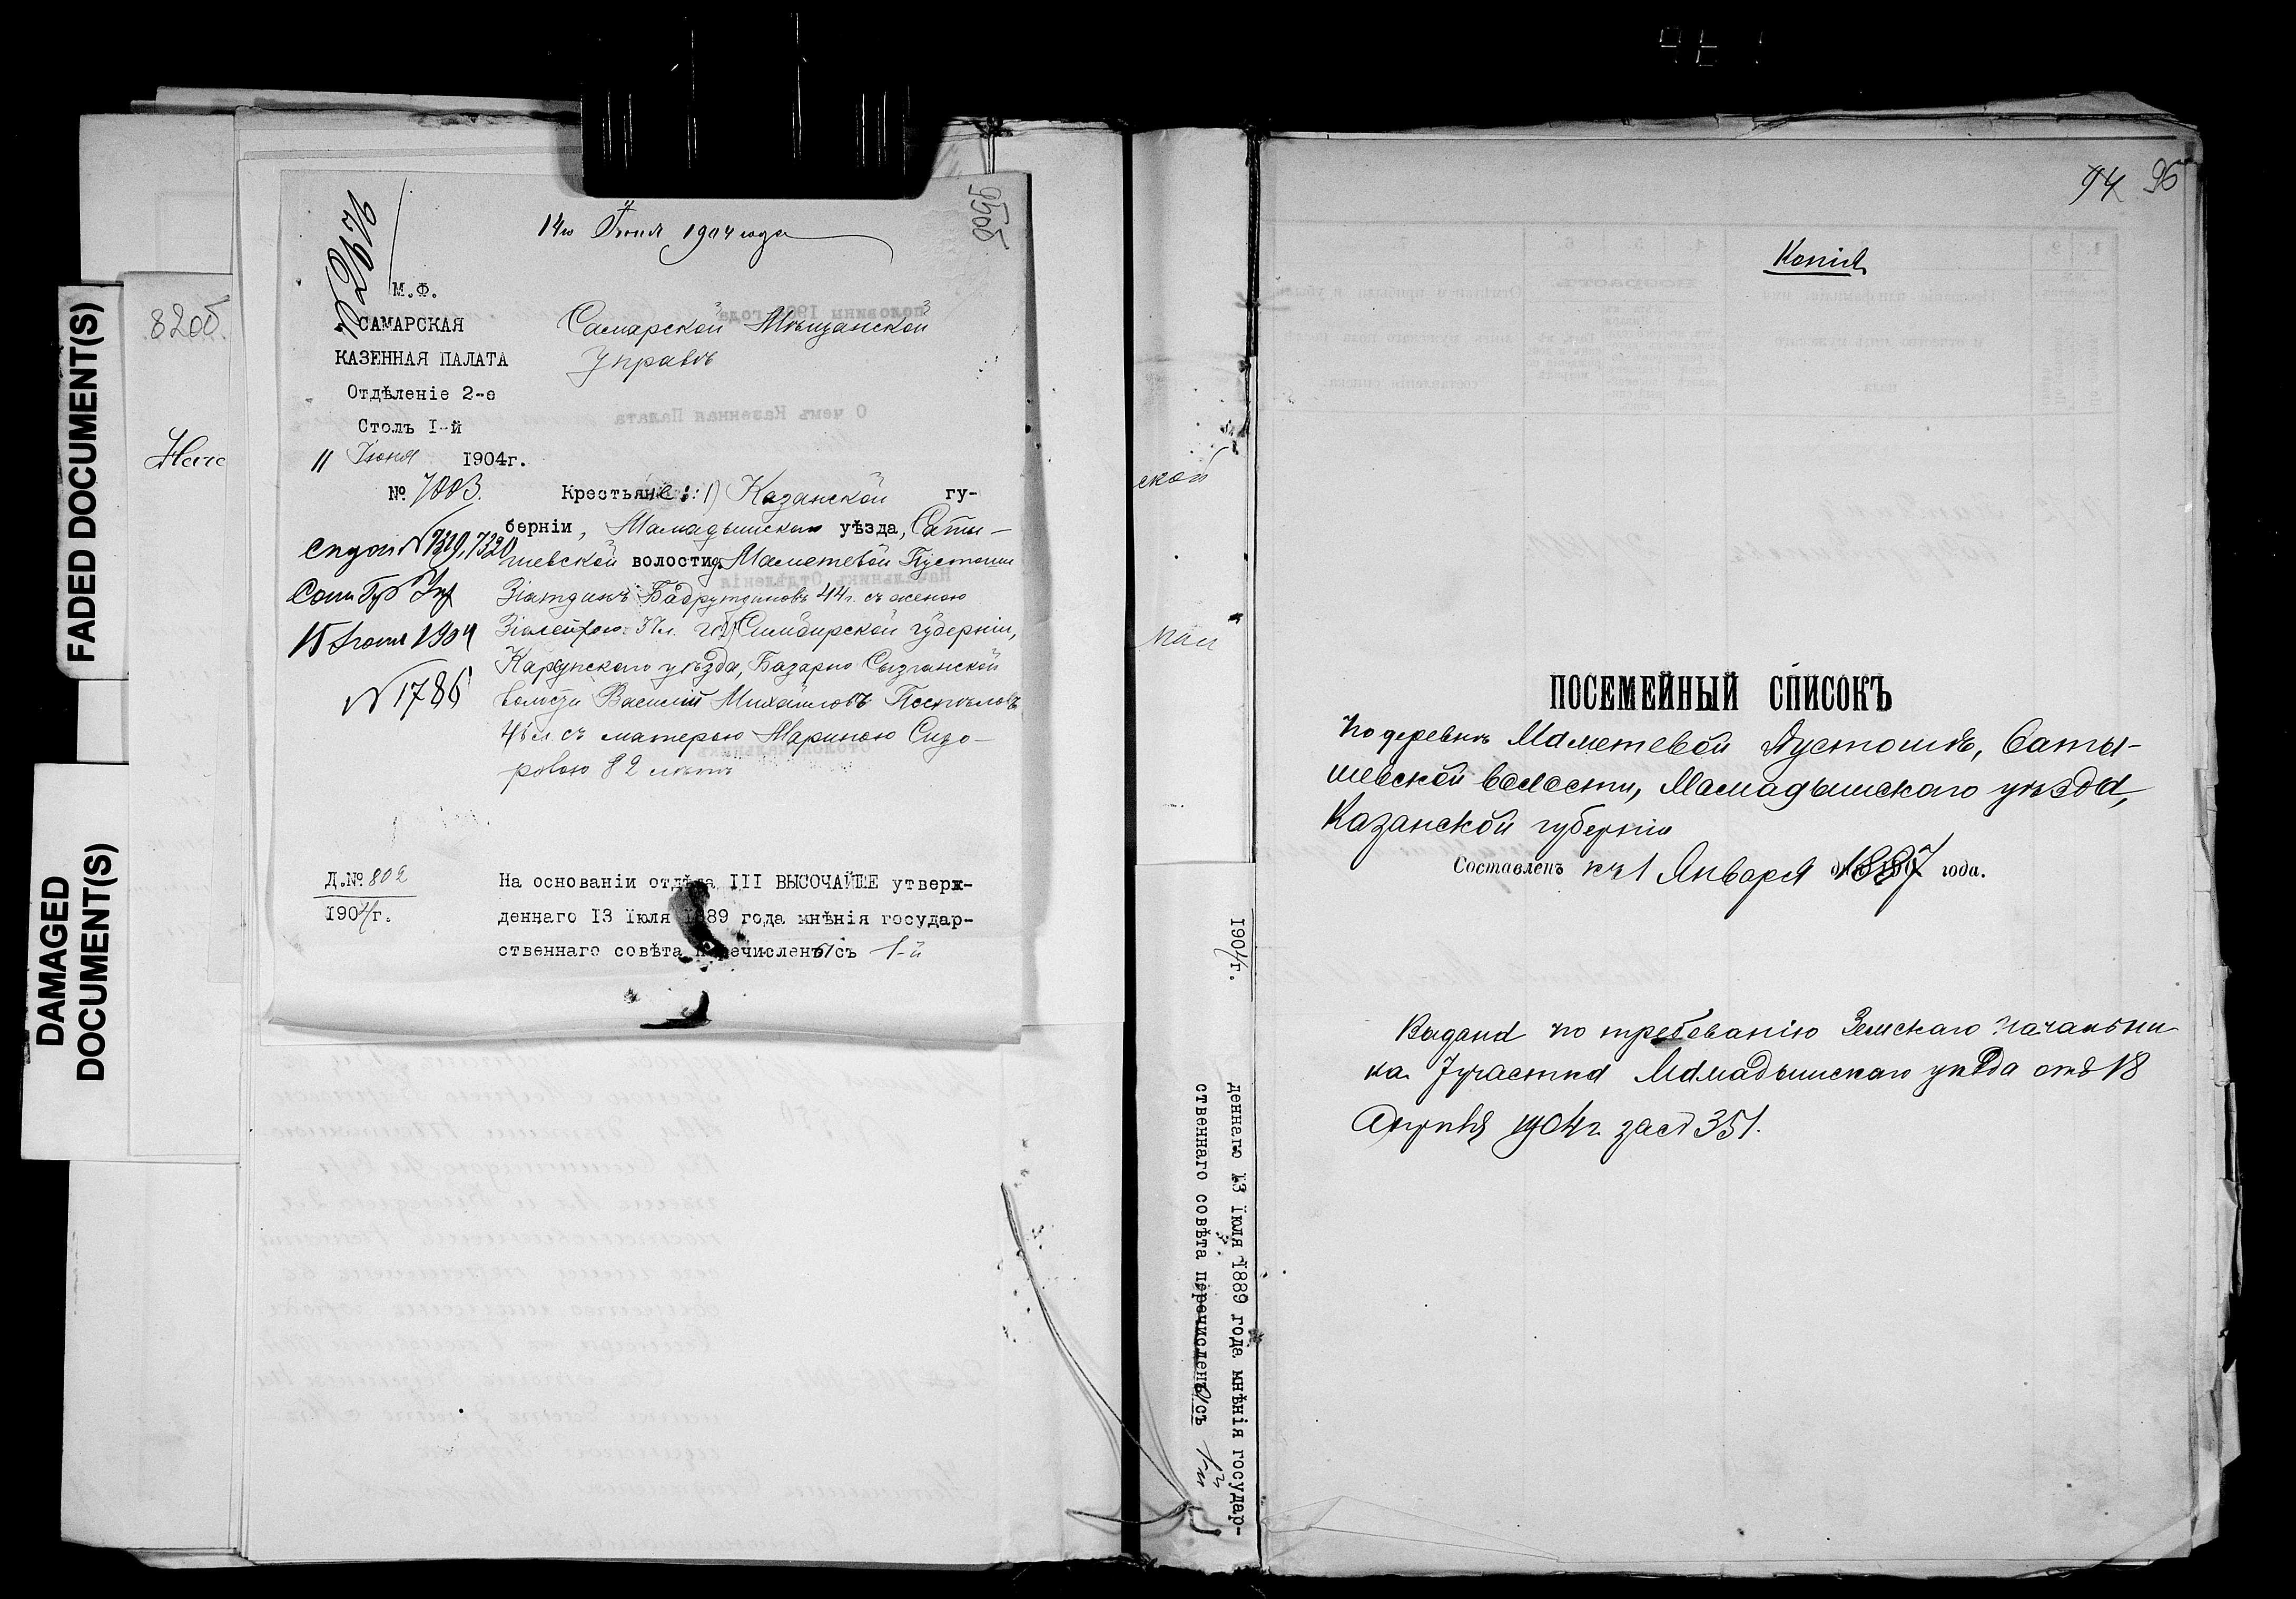 FADED DOCUMENT(S)
DAMAGED
DOCUMENT(S)
82об.
95об
№ 2676
14го Іюня 1904 года
М.Ф.
САМАРСКАЯ
КАЗЕННАЯ ПАЛАТА
Отдѣленіе 2-е
Столъ I-й
11 Іюня 1904г.
№ 7003.
Самарской Мѣщанской
Управѣ
Крестьяне: 1) Казанской гу-
берніи, Мамадышскаго уѣзда, Саты-
шевской волости д. Маметевой Пустоши
Зіатдинъ Бадрутдиновъ 44 г. съ женою
37 л. и 2) Симбирской губерніи,
Карсунскаго уѣзда, Базарно Сызганской
волости Василій Михайловъ Поспѣловъ
46 л. съ матерью Мариною Сидо-
ровою 82 лѣтъ
№ 7319, 7320
15 Іюня 1904
№ 1786
Д.№ 802
1904г.
На основаніи отдѣла III ВЫСОЧАЙШЕ утверж-
деннаго 13 іюля 1889 года мнѣнія государ-
ственнаго совѣта перечислены съ 1-й
ской
1904г.
деннаго 13 іюля 1889 года мнѣнія государ-
ственнаго совѣта перечислены съ 1-й
94 96
Копія
ПОСЕМЕЙНЫЙ СПИСОКЪ
по деревнѣ Маметевой Пустошѣ, Саты-
шевской волости, Мамадышскаго уѣзда,
Казанской губерніи
Составленъ къ 1 Января 1887 года.
Выдана по требованію Земскаго начальни-
ка 7 участка Мамадышскаго уѣзда отъ 18
Апрѣля 1904 г. за № 351.